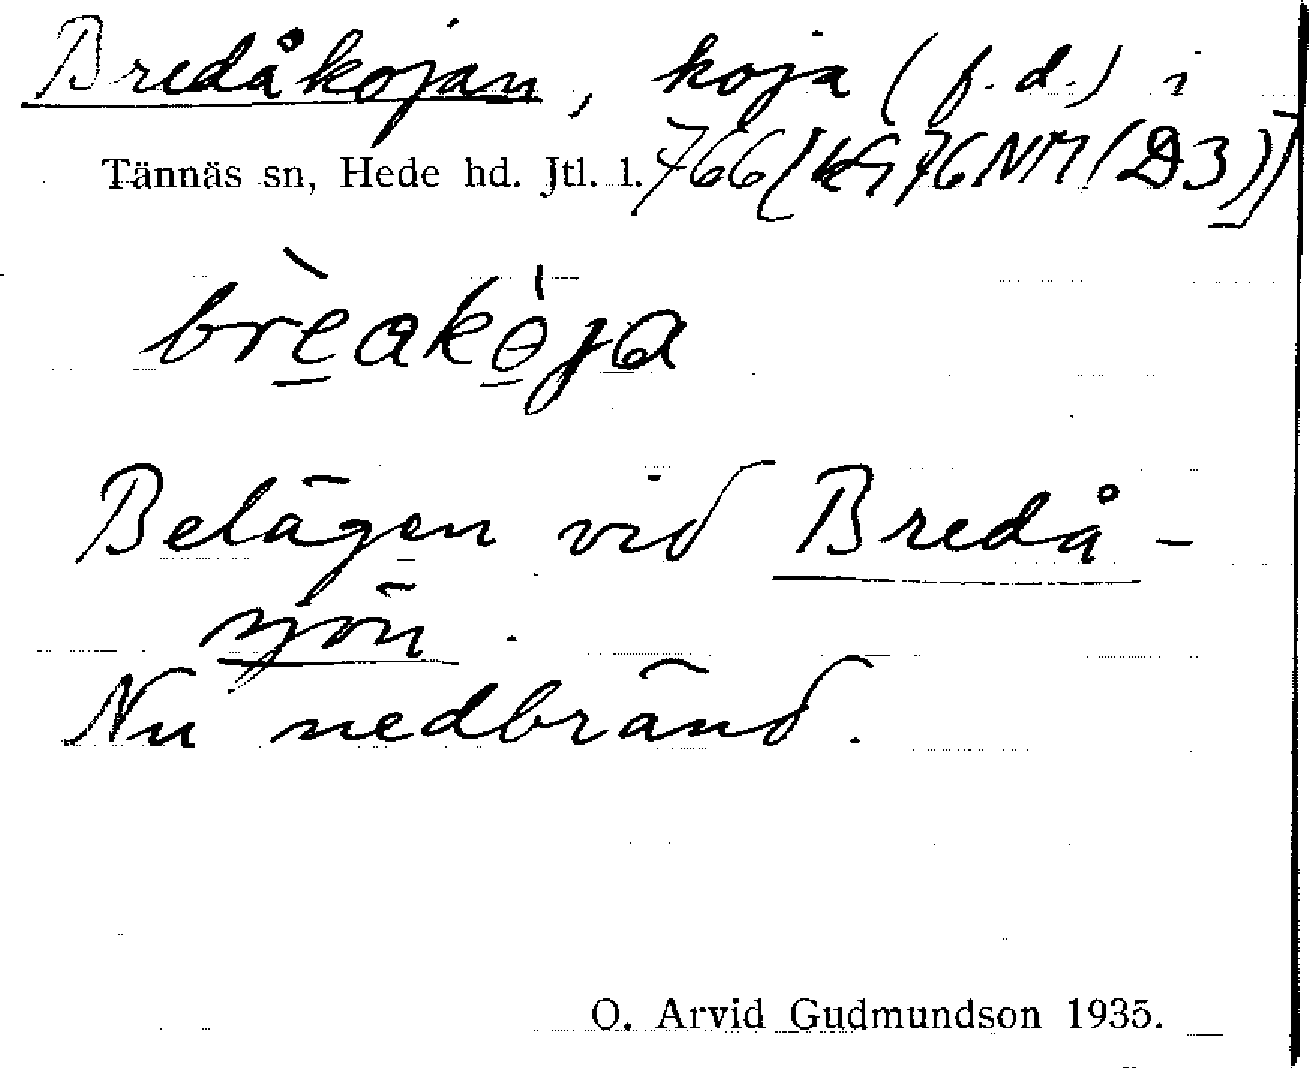 Bredåkojan, koja (f.d.) i
Tännäs sn, Hede hd. Jtl. l. 766 (KG 76 NM (D3))
brèakòja
Belägen vid Bredå-
sjön.
Nu nedbränd.
O. Arvid Gudmundson 1935.